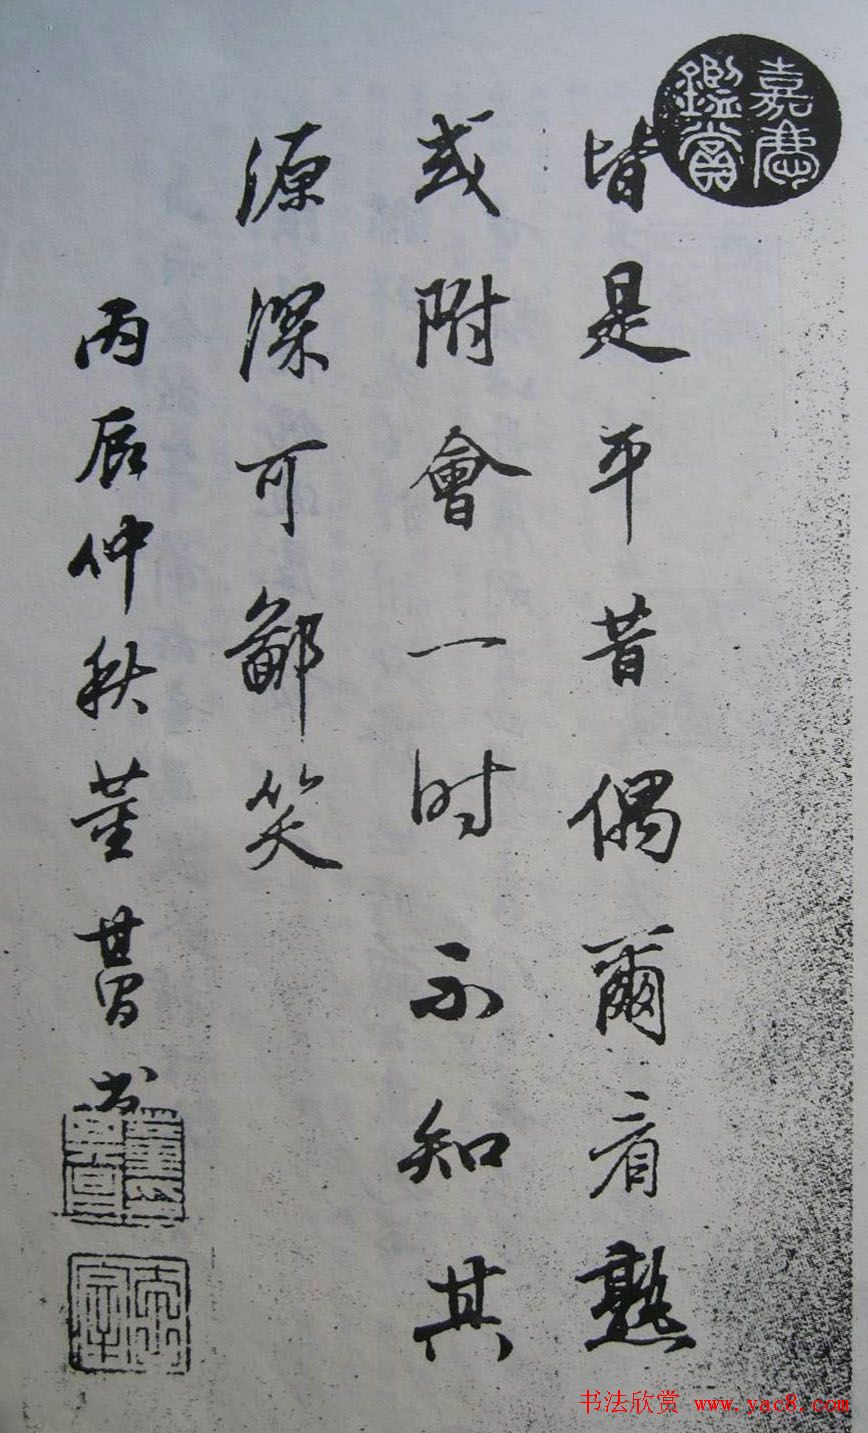 嘉慶鑑賞
皆是平昔偶爾看熟
或附會一时不知其
源深可鄙笑
丙辰仲秋董其昌书
书法欣赏 www.yac8.com